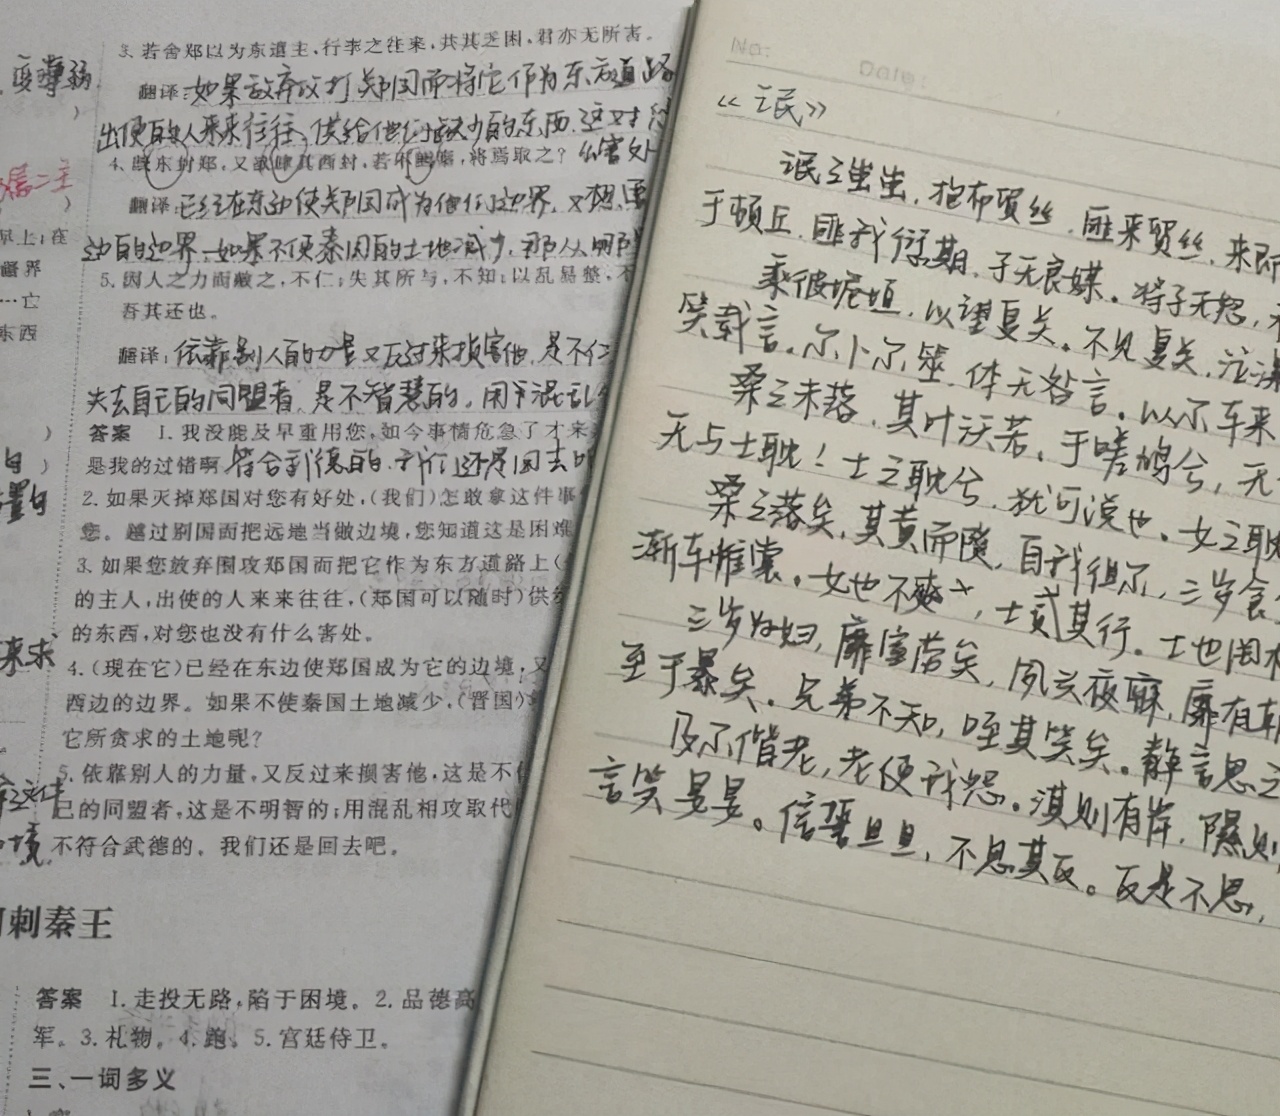 变薄弱
3. 若舍郑以为东道主，行李之往来，共其乏困，君亦无所害。
翻译：如果放弃攻打郑国而将它作为东方道路
出使的人来来往往，供给他们缺少的东西，这对
4. 既东封郑，又欲肆其西封，若不阙秦，将焉取之？ 么害处
翻译：已经在东边使郑国成为他们边界，又想
边的边界，如果不使秦国的土地减少，那从哪
5. 因人之力而敝之，不仁；失其所与，不知；以乱易整，不
吾其还也。
翻译：依靠别人的力量又反过来损害他，是不仁
失去自己的同盟者，是不智慧的，用混乱
答案 1. 我没能及早重用您，如今事情危急了才来
是我的过错啊 符合武德的，我们还是回去吧
2. 如果灭掉郑国对您有好处，(我们)怎敢拿这件事
您。越过别国而把远地当做边境，您知道这是困难
3. 如果您放弃围攻郑国而把它作为东方道路上(
的主人，出使的人来来往往，(郑国可以随时)供
的东西，对您也没有什么害处。
4. (现在它)已经在东边使郑国成为它的边境，又
西边的边界。如果不使秦国土地减少，(晋国)
它所贪求的土地呢？
5. 依靠别人的力量，又反过来损害他，这是不
己的同盟者，这是不明智的；用混乱相攻取代
不符合武德的。我们还是回去吧。
早上；在
界
…亡
东西
来求
境
刺秦王
答案 1. 走投无路，陷于困境。2. 品德高
军。3. 礼物。4. 跑。5. 宫廷侍卫。
三、一词多义
No:
Date:
《氓》
氓之蚩蚩，抱布贸丝，匪来贸丝，来即
于顿丘，匪我愆期，子无良媒。将子无怒，
乘彼垝垣，以望复关。不见复关，泣涕
笑载言。尔卜尔筮，体无咎言。以尔车来
桑之未落，其叶沃若。于嗟鸠兮，无
无与士耽！士之耽兮，犹可说也，女之耽
桑之落矣，其黄而陨，自我徂尔，三岁食
渐车帷裳。女也不爽，士贰其行。士也罔极
三岁为妇，靡室劳矣，夙兴夜寐，靡有朝
至于暴矣。兄弟不知，咥其笑矣。静言思之
及尔偕老，老使我怨。淇则有岸，隰则
言笑晏晏。信誓旦旦，不思其反。反是不思，